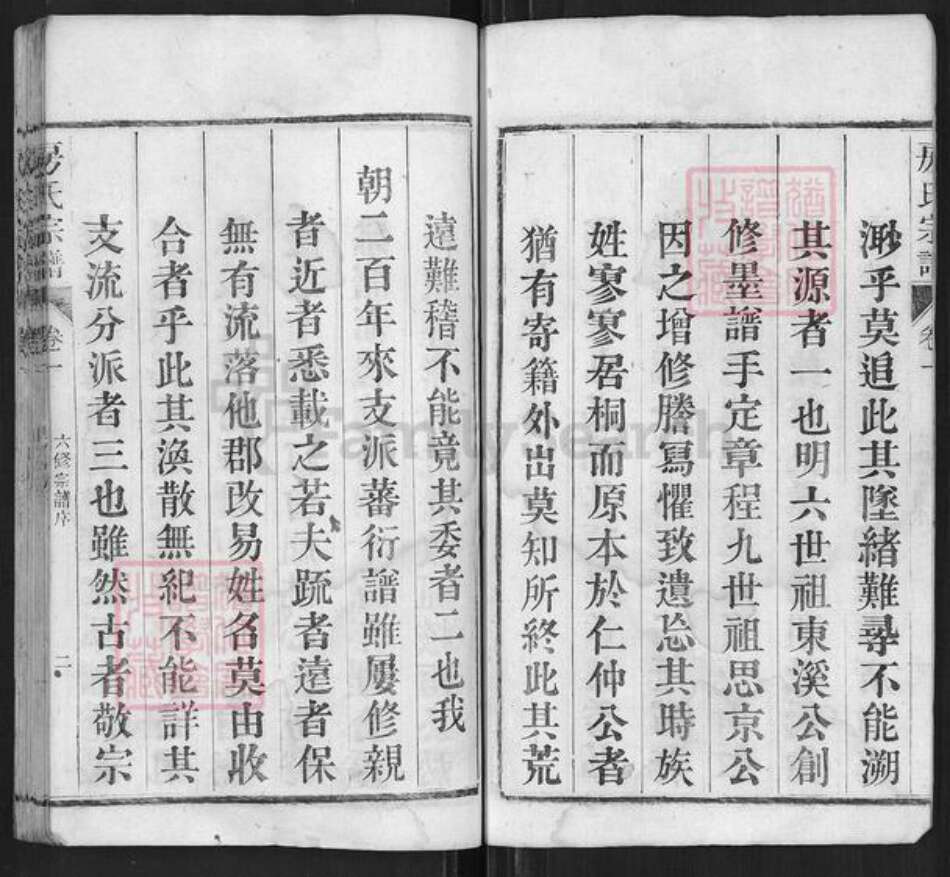 渺乎莫追此其墜緒難尋不能溯
其源者一也明六世祖東溪公創
修墨譜手定章程九世祖思京公
因之增修謄寫懼致遺忘其時族
姓寥寥居桐而原本於仁仲公者
猶有寄籍外出莫知所終此其荒
遠難稽不能竟其委者二也我
朝二百年來支派蕃衍譜雖屢修親
者近者悉載之若夫疏者遠者保
無有流落他郡改易姓名莫由收
合者乎此其渙散無紀不能詳其
支流分派者三也雖然古者敬宗
房氏宗譜
卷一
六修宗譜序
二
FamilySearch